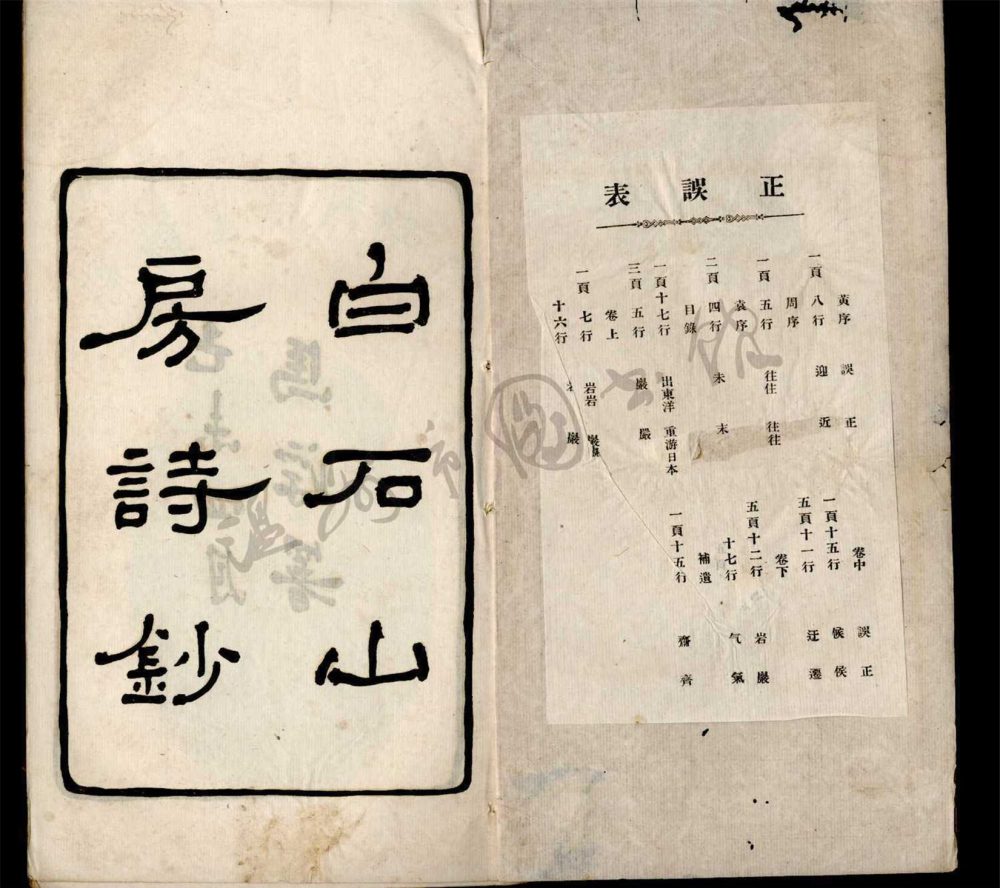 正誤表
黃序 誤 正
一頁八行 迎 近
周序
一頁五行 往住 往往
袁序
二頁四行 未 末
目錄
一頁十七行 出東洋 重游日本
三頁五行 巖 嚴
卷上
一頁七行 岩岩 巖巖
十六行 巖
卷中 誤 正
一頁十五行 候 侯
五頁十一行 迂 遷
卷下
五頁十二行 岩 巖
十七行 气 氣
補遺
一頁十五行 齋 齊
白石山
房詩鈔